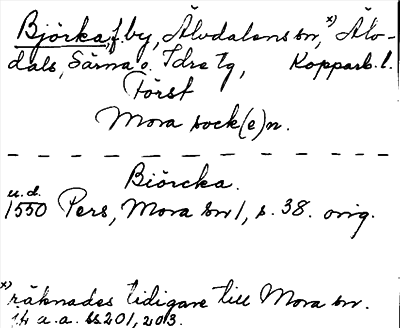 Björka, f. by, Älvdalens sn, x) Älv-
dals, Särna o. Idre tg, Kopparb. l.
Först
Mora sock(e)n.
Biörcka.
u.d.
1550 Pers, Mora sn 1, s. 38. orig.
x) räknades tidigare till Mora sn.
Jfr a.a. ss 201, 203.